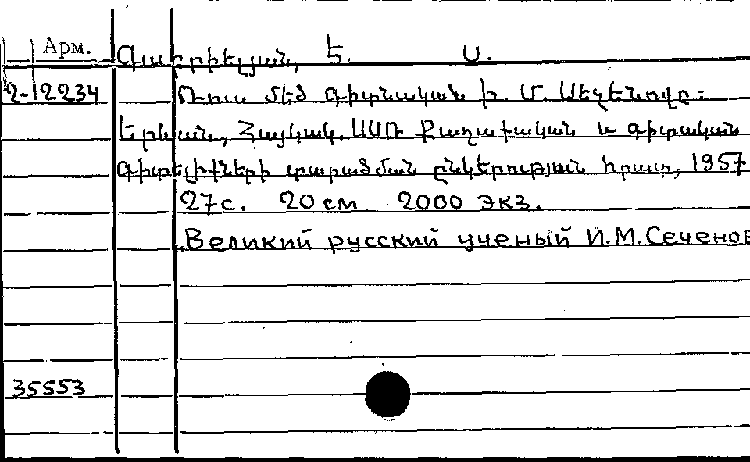 Арм. Գաբրիելյան, Ե. Ս.
2-12234 Ռուս մեծ գիտնական Ի. Մ. Սեչենովը:
Երևան, Հայկակ. ՍՍՌ Քաղաքական և գիտական
գիտելիքների տարածման ընկերություն հրատ, 1957
27с. 20 см 2000 экз.
Великий русский ученый И.М.Сеченов
35553